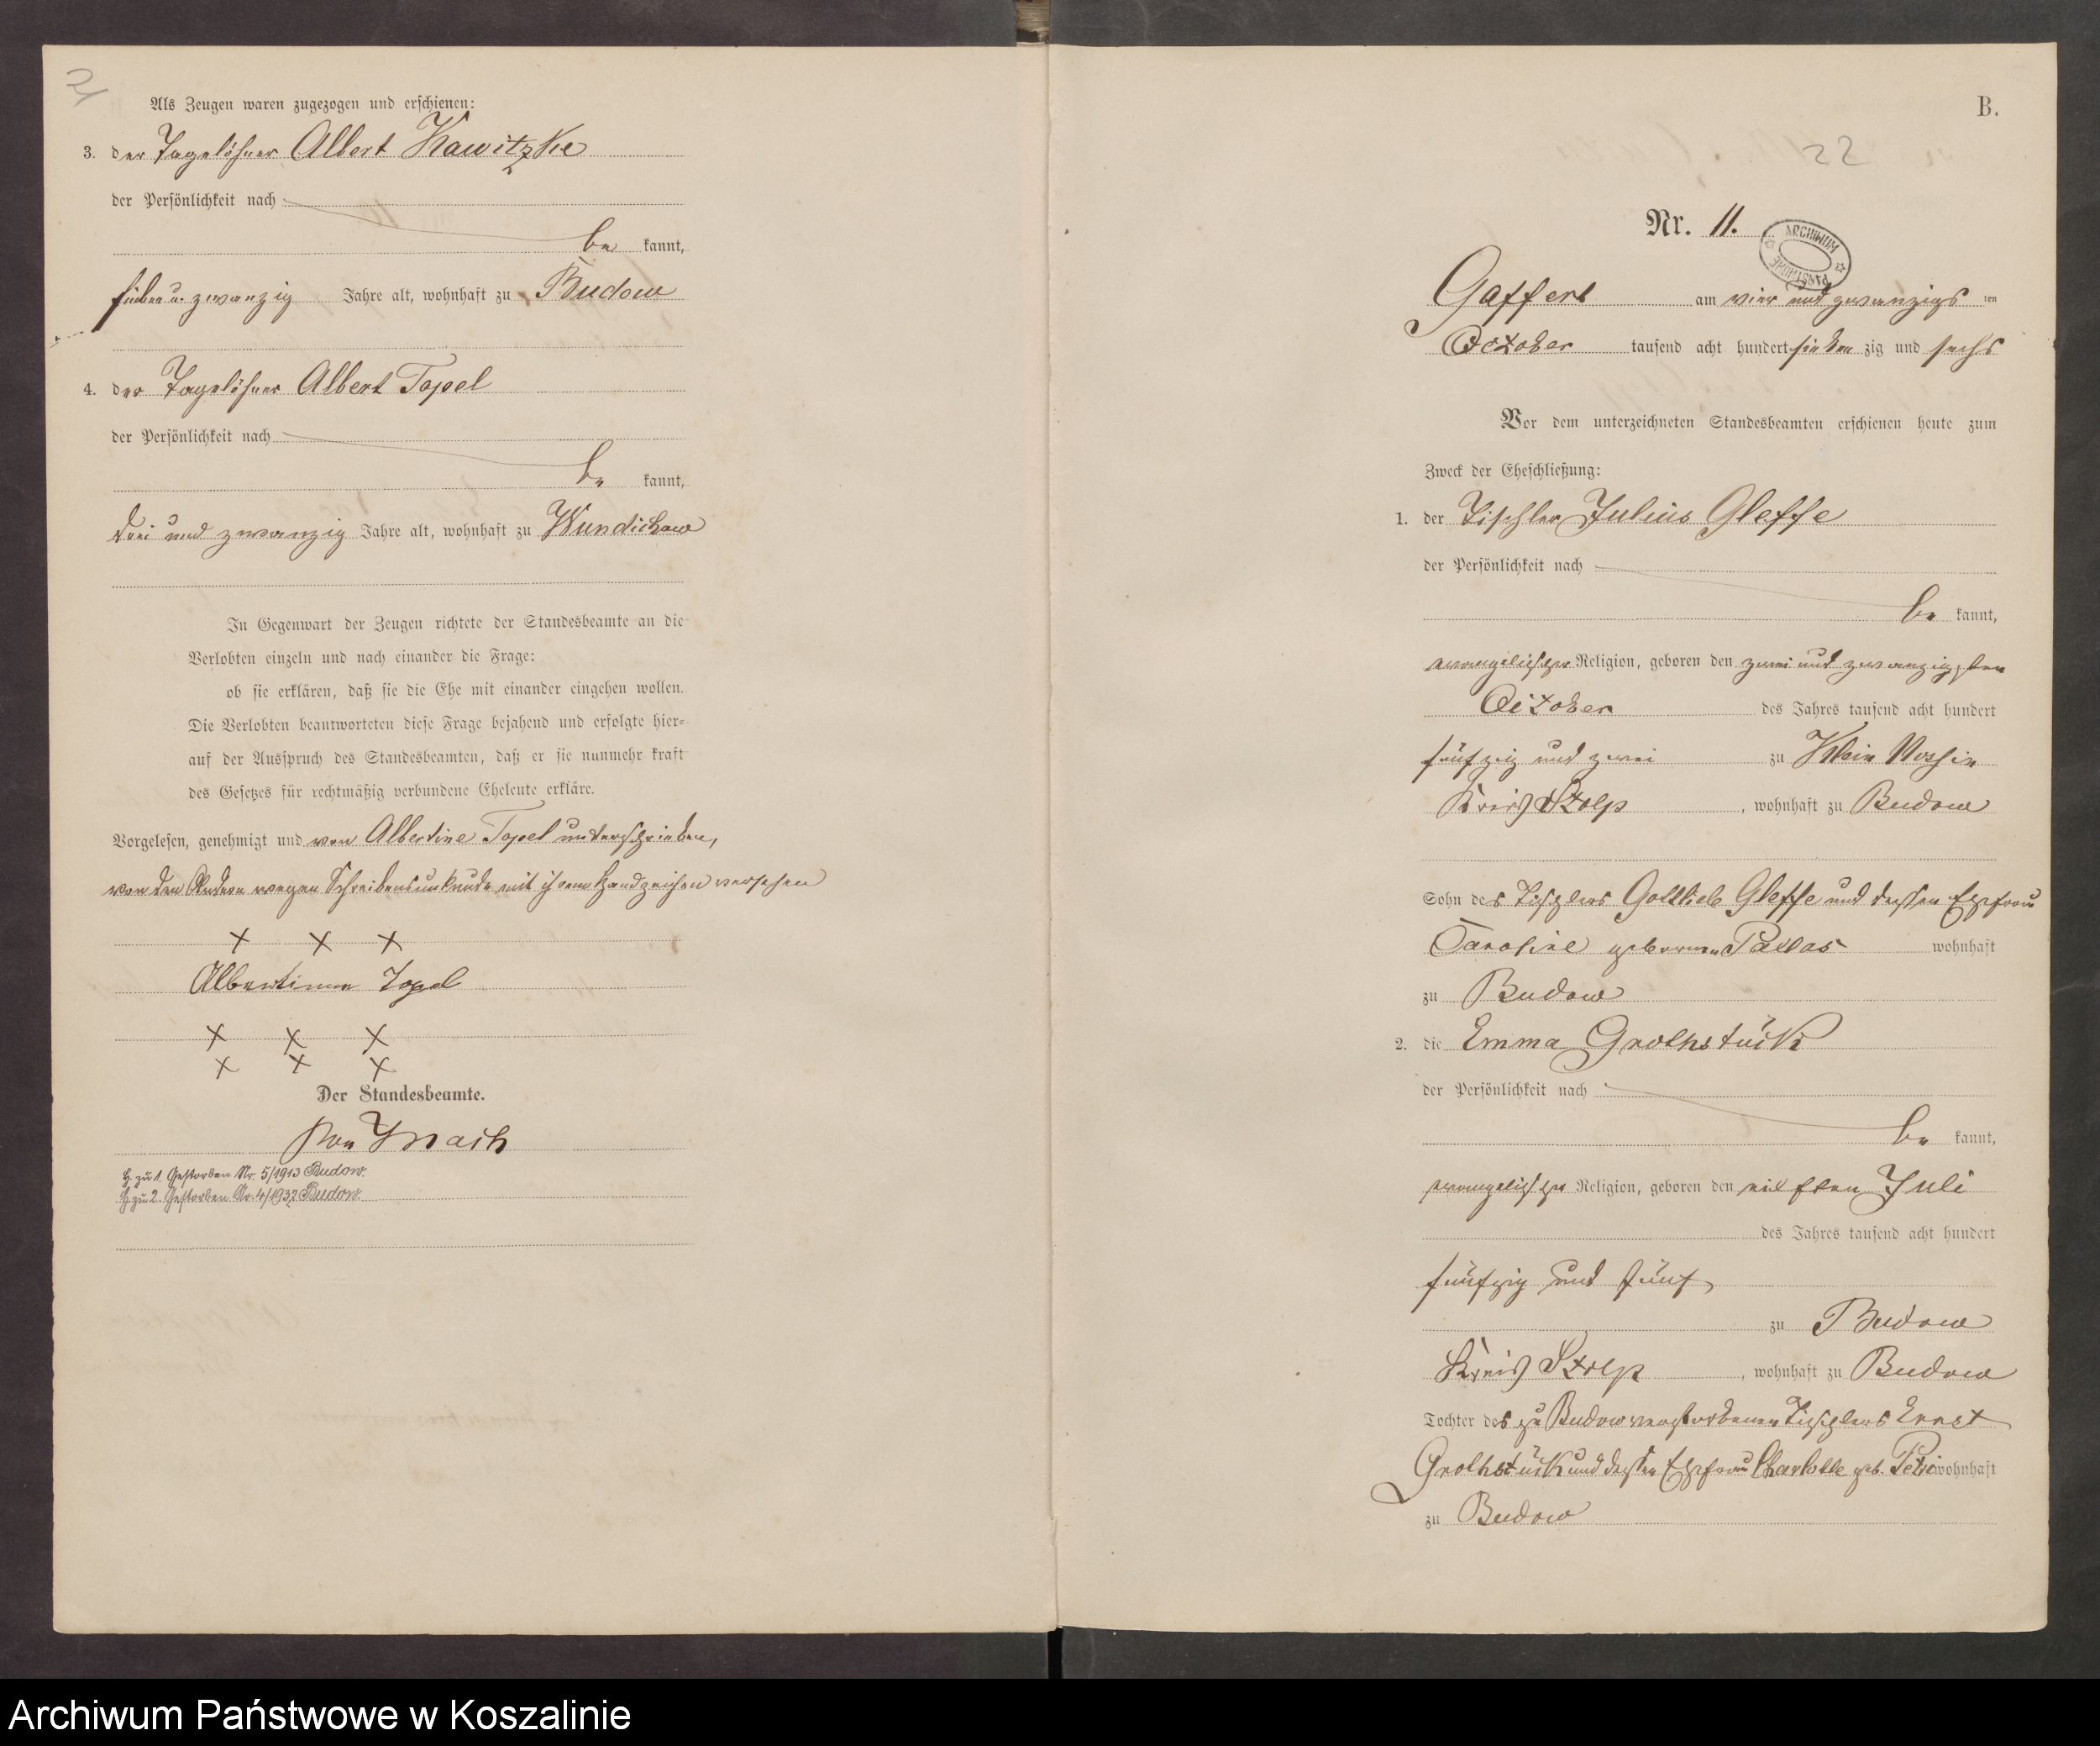 21
Als Zeugen waren zugezogen und erschienen:
3. der Tagelöhner Albert Kawitzke
der Persönlichkeit nach
be kannt,
sieben u. zwanzig Jahre alt, wohnhaft zu Budow
4. der Tagelöhner Albert Topel
der Persönlichkeit nach
be kannt,
drei und zwanzig Jahre alt, wohnhaft zu Wundichow
In Gegenwart der Zeugen richtete der Standesbeamte an die
Verlobten einzeln und nach einander die Frage:
ob sie erklären, daß sie die Ehe mit einander eingehen wollen.
Die Verlobten beantworteten diese Frage bejahend und erfolgte hier-
auf der Ausspruch des Standesbeamten, daß er sie nunmehr kraft
des Gesetzes für rechtmäßig verbundene Eheleute erkläre.
Vorgelesen, genehmigt und von Albertine Topel unterschrieben,
von den Andern wegen Schreibensunkunde mit ihrem Handzeichen versehen
x x x
Albertine Topel
x x x
x x x
Der Standesbeamte.
von
H. zu 1. Gestorben Nr. 5/1913 Budow.
H. zu 2. Gestorben Nr. 4/1932 Budow.
B.
22
Nr. 11.
ARCHIWUM PAŃSTWOWE
Gaffert am vier und zwanzigs ten
October tausend acht hundert sieben zig und sechs
Vor dem unterzeichneten Standesbeamten erschienen heute zum
Zweck der Eheschließung:
1. der Tischler Julius Gleffe
der Persönlichkeit nach
be kannt,
evangelischer Religion, geboren den zwei und zwanzigsten
October des Jahres tausend acht hundert
fünfzig und zwei zu Klein Nossin
Kreis Stolp, wohnhaft zu Budow
Sohn des Tischlers Gottlieb Gleffe und dessen Ehefrau
Caroline geborenen Pallas wohnhaft
zu Budow
2. die Emma Grothstück
der Persönlichkeit nach
be kannt,
evangelischer Religion, geboren den eilften Juli
des Jahres tausend acht hundert
fünfzig und fünf
zu Budow
Kreis Stolp, wohnhaft zu Budow
Tochter des zu Budow verstorbenen Tischlers Ernst
Grothstück und dessen Ehefrau Charlotte geb. wohnhaft
zu Budow
Archiwum Państwowe w Koszalinie